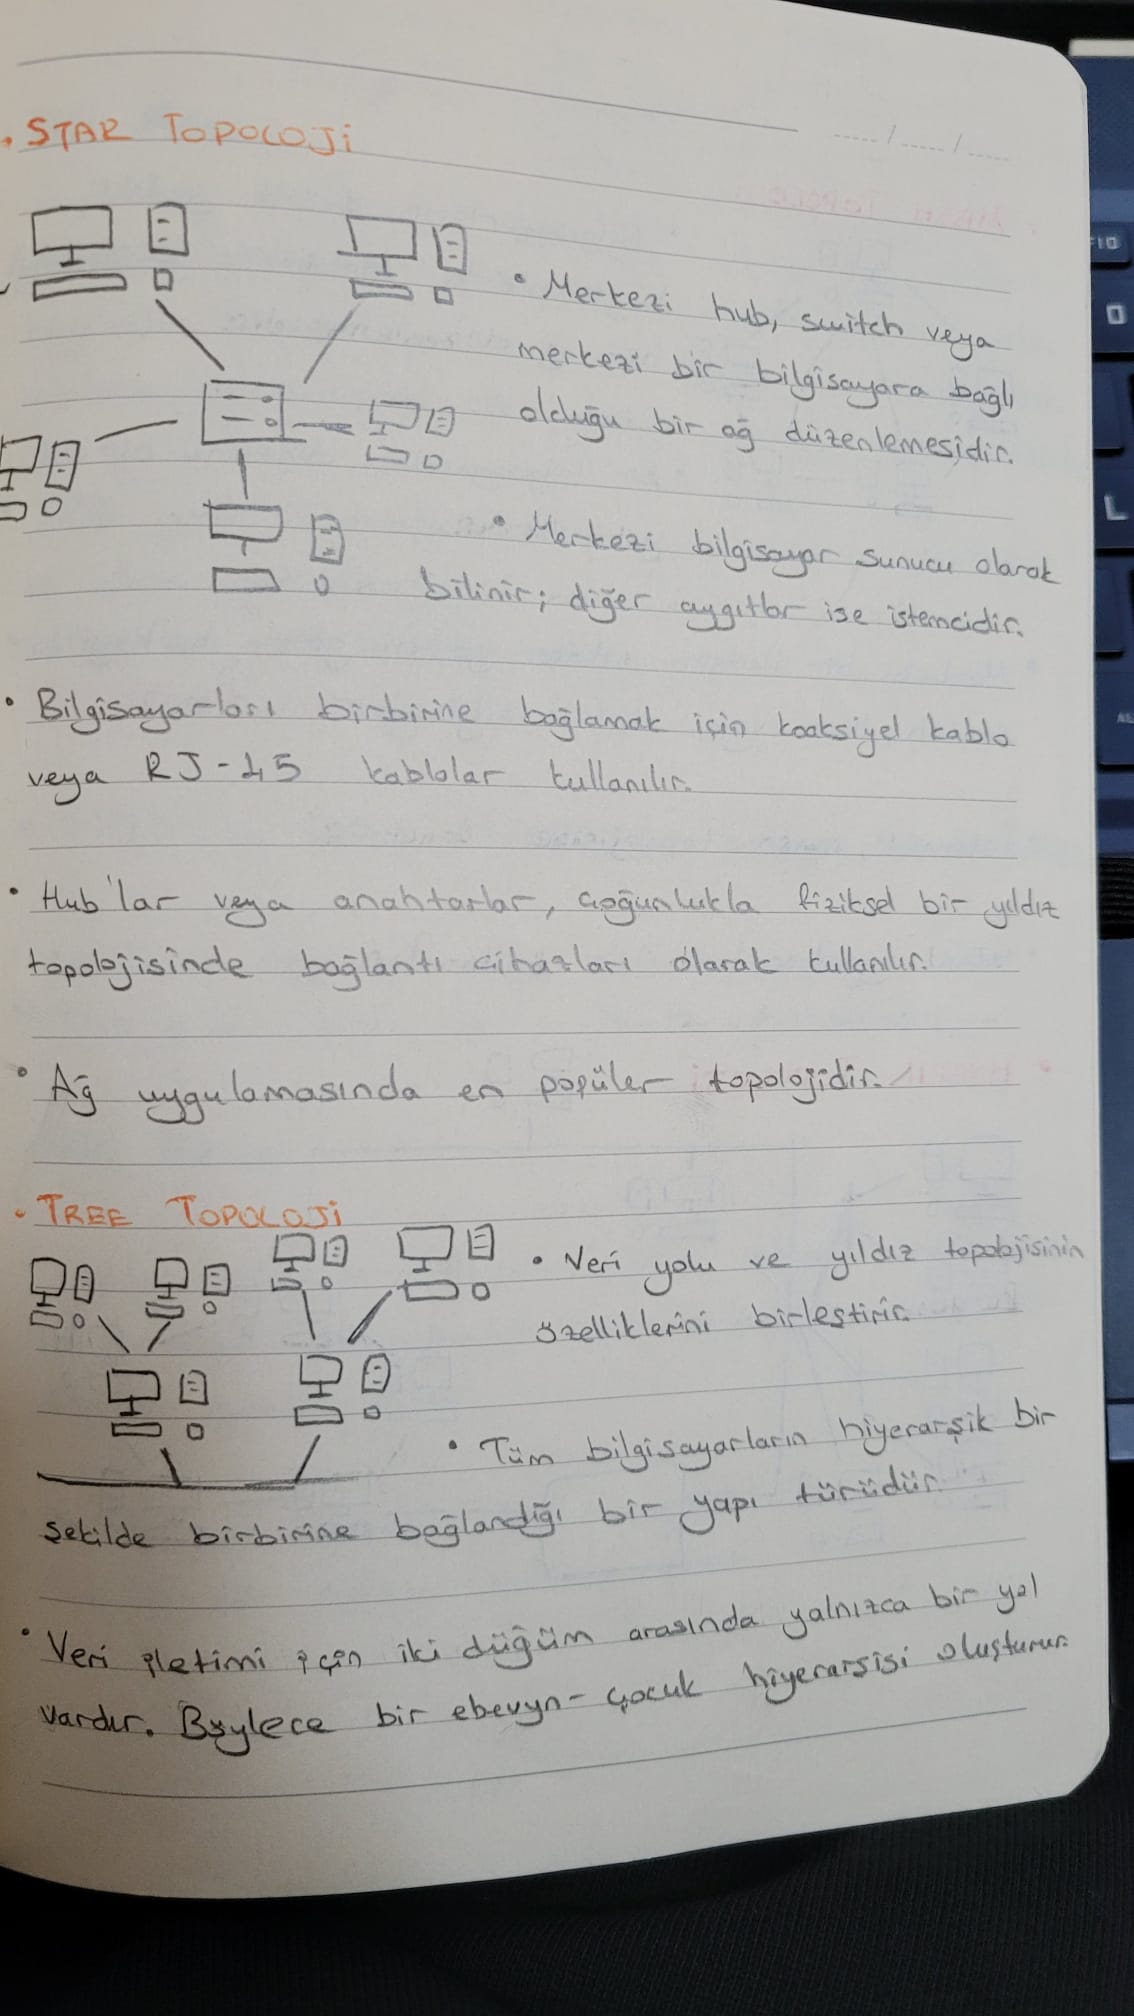 . STAR TOPOLOJi
..... / ..... / .....
• Merkezi hub, switch veya
merkezi bir bilgisayara bağlı
olduğu bir ağ düzenlemesidir.
• Merkezi bilgisayar sunucu olarak
bilinir; diğer aygıtlar ise istemcidir.
• Bilgisayarları birbirine bağlamak için koaksiyel kablo
veya RJ-45 kablolar kullanılır.
• Hub'lar veya anahtarlar, çoğunlukla fiziksel bir yıldız
topolojisinde bağlantı cihazları olarak kullanılır.
• Ağ uygulamasında en popüler topolojidir.
• TREE TOPOLOJi
• Veri yolu ve yıldız topolojisinin
özelliklerini birleştirir.
• Tüm bilgisayarların hiyerarşik bir
şekilde birbirine bağlandığı bir yapı türüdür.
• Veri iletimi için iki düğüm arasında yalnızca bir yol
vardır. Böylece bir ebevyn-çocuk hiyerarşisi oluşturur.
F10
L